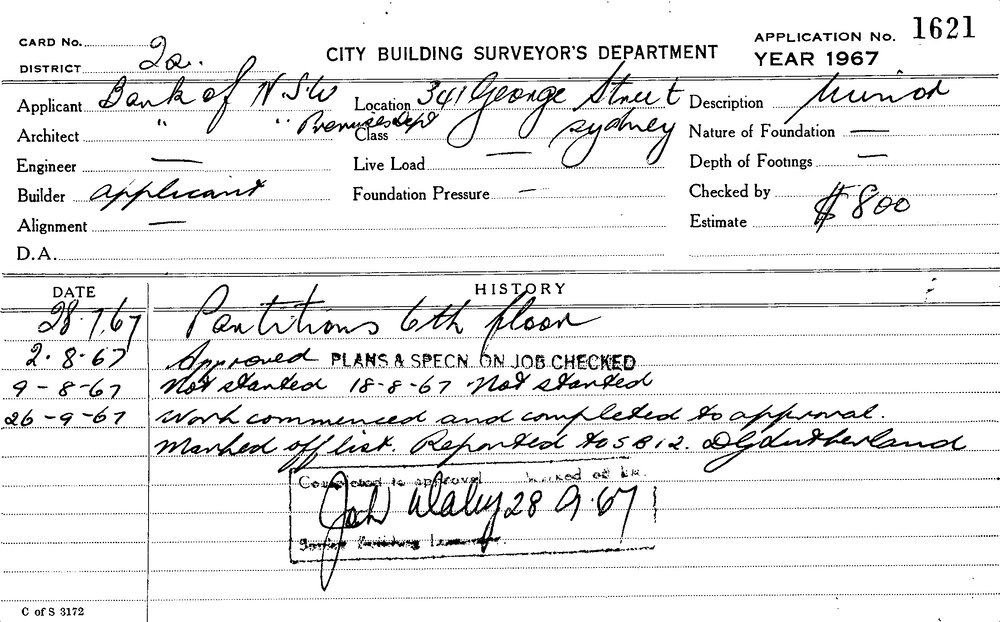 CARD No.
DISTRICT 2a.
CITY BUILDING SURVEYOR'S DEPARTMENT
APPLICATION No. 1621
YEAR 1967
Applicant Bank of N.S.W
Location 341 George Street
Sydney
Description Minor
Architect " " Premises Dept
Class
Nature of Foundation —
Engineer —
Live Load —
Depth of Footings —
Builder applicant
Foundation Pressure —
Checked by
Alignment —
Estimate $800
D.A.
DATE HISTORY
28.7.67 Partitions 6th floor
2.8.67 Approved PLANS & SPECN. ON JOB CHECKED
9-8-67 Not started 18-8-67 Not started
26-9-67 Work commenced and completed to approval.
Marked off list. Reported to S B i 2. DG Sutherland
Completed to approval
28 9.67
C of S 3172